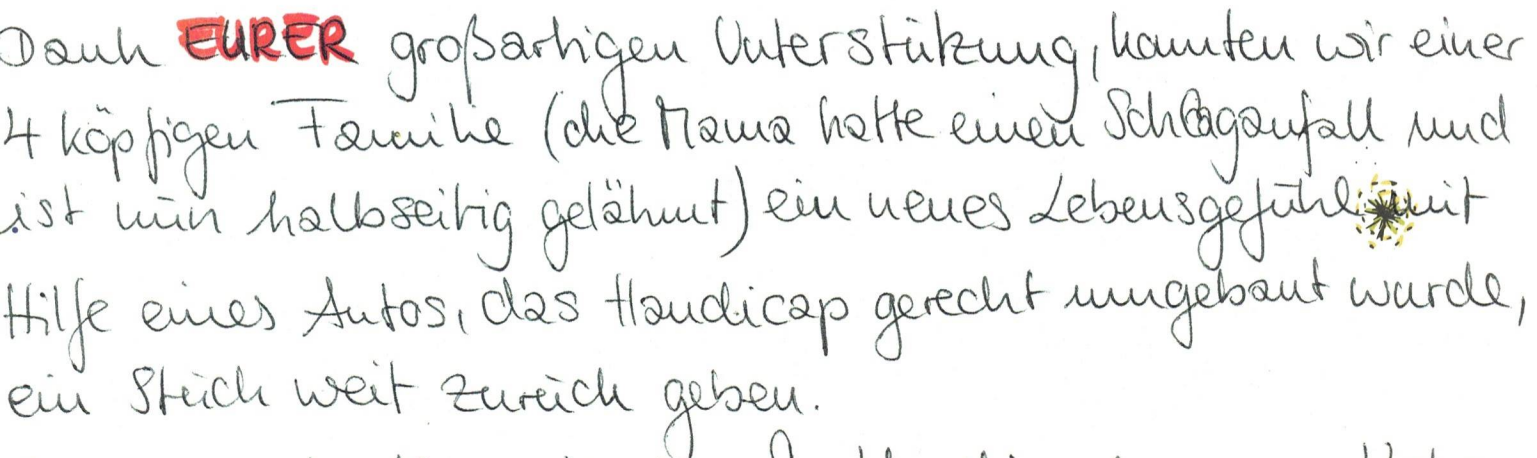 Dank EURER großartigen Unterstützung, konnten wir einer
4 köpfigen Familie (die Mama hatte einen Schlaganfall und
ist nun halbseitig gelähmt) ein neues Lebensgefühl mit
Hilfe eines Autos, das Handicap gerecht umgebaut wurde,
ein Stück weit zurück geben.